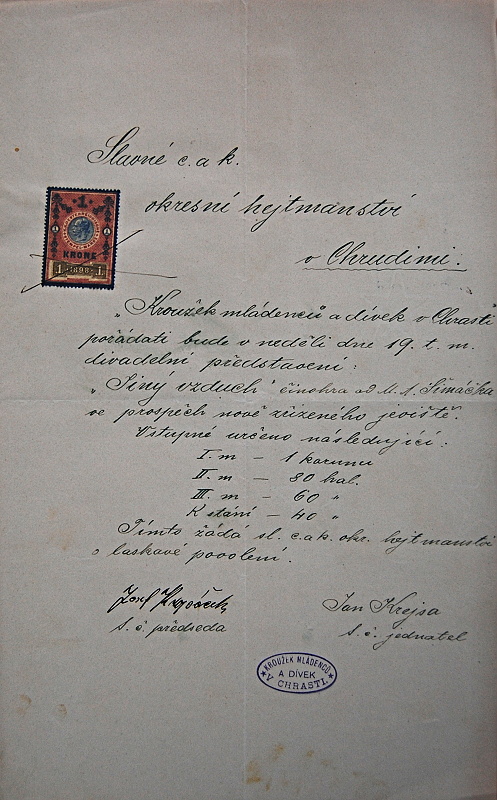 Slavné c. a k.
okresní hejtmanství
v Chrudimi.
1
KRONE
1 1898 1
„Kroužek mládenců a dívek v Chrasti"
pořádati bude v neděli dne 19. t. m.
divadelní představení:
„Jiný vzduch" činohra od M. A. Šimáčka
ve prospěch nově zřízeného jeviště.
Vstupné určeno následující:
I. m – 1 korunu
II. m – 80 hal.
III. m – 60 "
K stání – 40 "
Tímto žádá sl. c. a k. okr. hejtmanství
o laskavé povolení.
Josef
t. č. předseda
Jan Krejsa
t. č. jednatel
KROUŽEK MLÁDENCŮ
A DÍVEK
V CHRASTI.